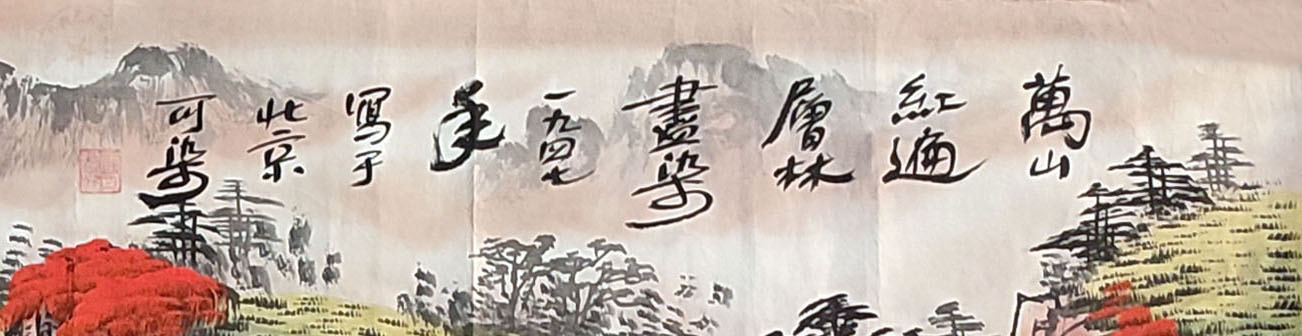 萬山
紅遍
層林
盡染
一九四七
年
寫于
北京
可染